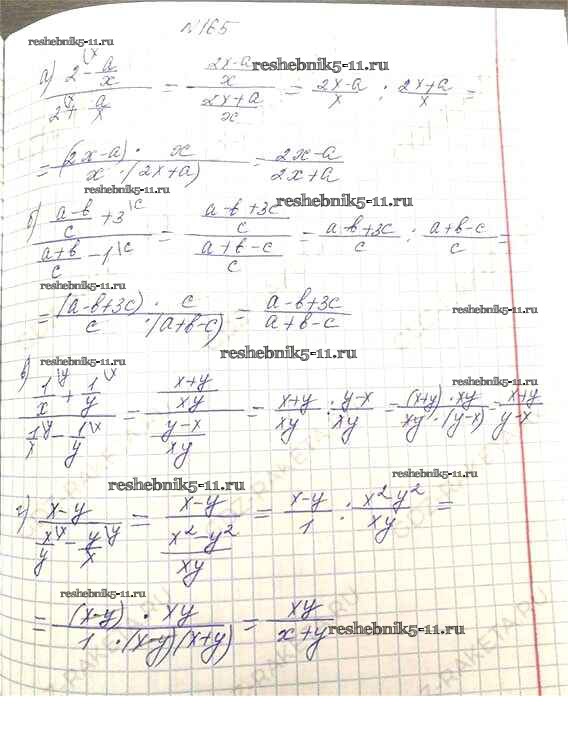 №165
reshebnik5-11.ru
reshebnik5-11.ru
reshebnik5-11.ru
а) (2 - a/x \x) / (2 \x + a/x) = ((2x-a)/x) / ((2x+a)/x) = (2x-a)/x : (2x+a)/x =
= ((2x-a) · x) / (x · (2x+a)) = (2x-a)/(2x+a)
reshebnik5-11.ru
reshebnik5-11.ru
б) ((a-b)/c + 3 \c) / ((a+b)/c - 1 \c) = ((a-b+3c)/c) / ((a+b-c)/c) = (a-b+3c)/c : (a+b-c)/c =
reshebnik5-11.ru
reshebnik5-11.ru
= ((a-b+3c) · c) / (c · (a+b-c)) = (a-b+3c)/(a+b-c)
reshebnik5-11.ru
reshebnik5-11.ru
reshebnik5-11.ru
в) (1/x \y + 1/y \x) / (1/x \y - 1/y \x) = ((x+y)/xy) / ((y-x)/xy) = (x+y)/xy : (y-x)/xy = ((x+y) · xy) / (xy · (y-x)) = (x+y)/(y-x)
reshebnik5-11.ru
reshebnik5-11.ru
г) (x-y) / (x/y \x - y/x \y) = (x-y) / ((x²-y²)/xy) = (x-y)/1 : (x²y²)/xy =
reshebnik5-11.ru
= ((x-y) · xy) / (1 · (x-y)(x+y)) = xy/(x+y)
reshebnik5-11.ru